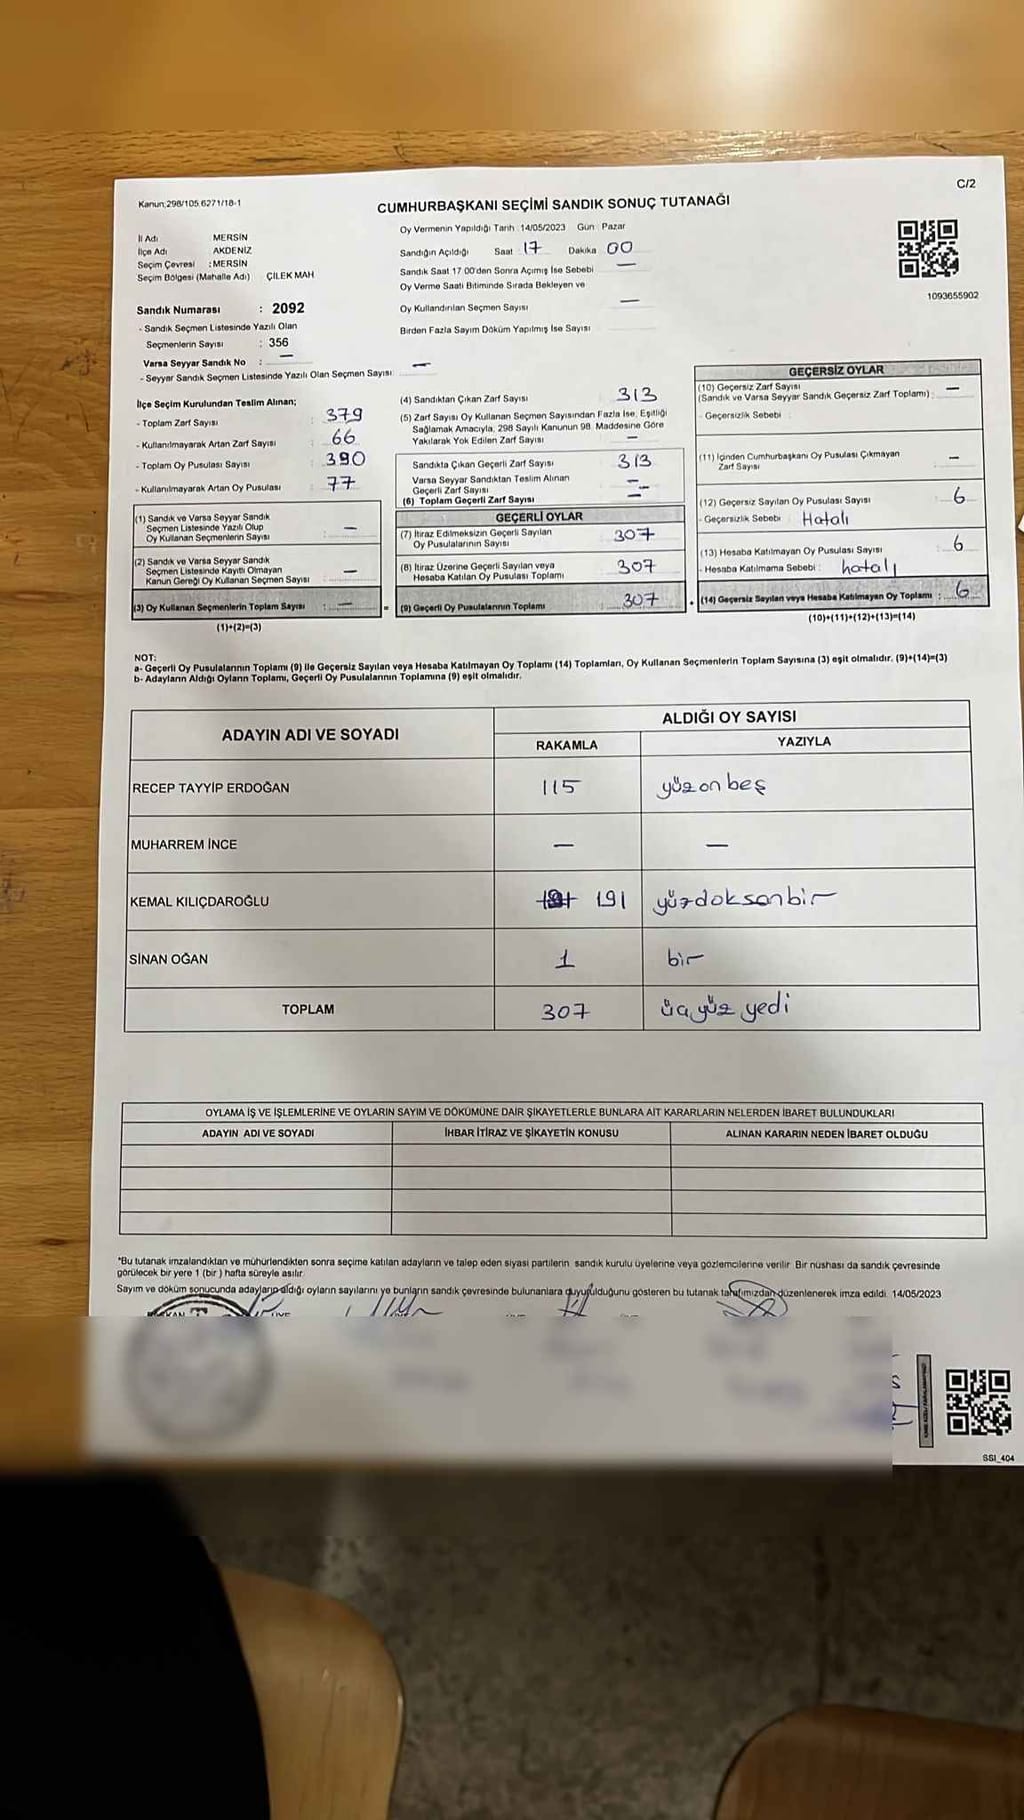 C/2
Kanun:298/105.6271/18-1
CUMHURBAŞKANI SEÇİMİ SANDIK SONUÇ TUTANAĞI
İl Adı MERSİN
İlçe Adı AKDENİZ
Seçim Çevresi : MERSİN
Seçim Bölgesi (Mahalle Adı) ÇİLEK MAH
Sandık Numarası : 2092
- Sandık Seçmen Listesinde Yazılı Olan
Seçmenlerin Sayısı : 356
Varsa Seyyar Sandık No : —
- Seyyar Sandık Seçmen Listesinde Yazılı Olan Seçmen Sayısı: —
Oy Vermenin Yapıldığı Tarih :14/05/2023 Gün : Pazar
Sandığın Açıldığı Saat 17 Dakika 00
Sandık Saat 17.00'den Sonra Açımış İse Sebebi —
Oy Verme Saati Bitiminde Sırada Bekleyen ve
Oy Kullandırılan Seçmen Sayısı —
Birden Fazla Sayım Döküm Yapılmış İse Sayısı
1093655902
İlçe Seçim Kurulundan Teslim Alınan;
- Toplam Zarf Sayısı : 379
- Kullanılmayarak Artan Zarf Sayısı : 66
- Toplam Oy Pusulası Sayısı : 390
- Kullanılmayarak Artan Oy Pusulası : 77
(1) Sandık ve Varsa Seyyar Sandık
Seçmen Listesinde Yazılı Olup
Oy Kullanan Seçmenlerin Sayısı : —
(2) Sandık ve Varsa Seyyar Sandık
Seçmen Listesinde Kayıtlı Olmayan
Kanun Gereği Oy Kullanan Seçmen Sayısı : —
(3) Oy Kullanan Seçmenlerin Toplam Sayısı : — =
(1)+(2)=(3)
(4) Sandıktan Çıkan Zarf Sayısı 313
(5) Zarf Sayısı Oy Kullanan Seçmen Sayısından Fazla İse, Eşitliği
Sağlamak Amacıyla, 298 Sayılı Kanunun 98. Maddesine Göre
Yakılarak Yok Edilen Zarf Sayısı —
Sandıkta Çıkan Geçerli Zarf Sayısı : 313
Varsa Seyyar Sandıktan Teslim Alınan
Geçerli Zarf Sayısı : —
(6) Toplam Geçerli Zarf Sayısı : —
GEÇERLİ OYLAR
(7) İtiraz Edilmeksizin Geçerli Sayılan
Oy Pusulalarının Sayısı : 307
(8) İtiraz Üzerine Geçerli Sayılan veya
Hesaba Katılan Oy Pusulası Toplamı : 307
(9) Geçerli Oy Pusulalarının Toplamı : 307 +
GEÇERSİZ OYLAR
(10) Geçersiz Zarf Sayısı
(Sandık ve Varsa Seyyar Sandık Geçersiz Zarf Toplamı) : —
- Geçersizlik Sebebi :
(11) İçinden Cumhurbaşkanı Oy Pusulası Çıkmayan
Zarf Sayısı : —
(12) Geçersiz Sayılan Oy Pusulası Sayısı : 6
- Geçersizlik Sebebi : Hatalı
(13) Hesaba Katılmayan Oy Pusulası Sayısı : 6
- Hesaba Katılmama Sebebi : hatalı
(14) Geçersiz Sayılan veya Hesaba Katılmayan Oy Toplamı : 6
(10)+(11)+(12)+(13)=(14)
NOT:
a- Geçerli Oy Pusulalarının Toplamı (9) ile Geçersiz Sayılan veya Hesaba Katılmayan Oy Toplamı (14) Toplamları, Oy Kullanan Seçmenlerin Toplam Sayısına (3) eşit olmalıdır. (9)+(14)=(3)
b- Adayların Aldığı Oyların Toplamı, Geçerli Oy Pusulalarının Toplamına (9) eşit olmalıdır.
ADAYIN ADI VE SOYADI ALDIĞI OY SAYISI
RAKAMLA YAZIYLA
RECEP TAYYİP ERDOĞAN 115 yüz on beş
MUHARREM İNCE — —
KEMAL KILIÇDAROĞLU 191 yüzdoksanbir
SİNAN OĞAN 1 bir
TOPLAM 307 üçyüz yedi
OYLAMA İŞ VE İŞLEMLERİNE VE OYLARIN SAYIM VE DÖKÜMÜNE DAİR ŞİKAYETLERLE BUNLARA AİT KARARLARIN NELERDEN İBARET BULUNDUKLARI
ADAYIN ADI VE SOYADI İHBAR İTİRAZ VE ŞİKAYETİN KONUSU ALINAN KARARIN NEDEN İBARET OLDUĞU
*Bu tutanak imzalandıktan ve mühürlendikten sonra seçime katılan adayların ve talep eden siyasi partilerin sandık kurulu üyelerine veya gözlemcilerine verilir. Bir nüshası da sandık çevresinde
görülecek bir yere 1 (bir) hafta süreyle asılır.
Sayım ve döküm sonucunda adayların aldığı oyların sayılarını ve bunların sandık çevresinde bulunanlara duyurulduğunu gösteren bu tutanak tarafımızdan düzenlenerek imza edildi. 14/05/2023
SSI_404